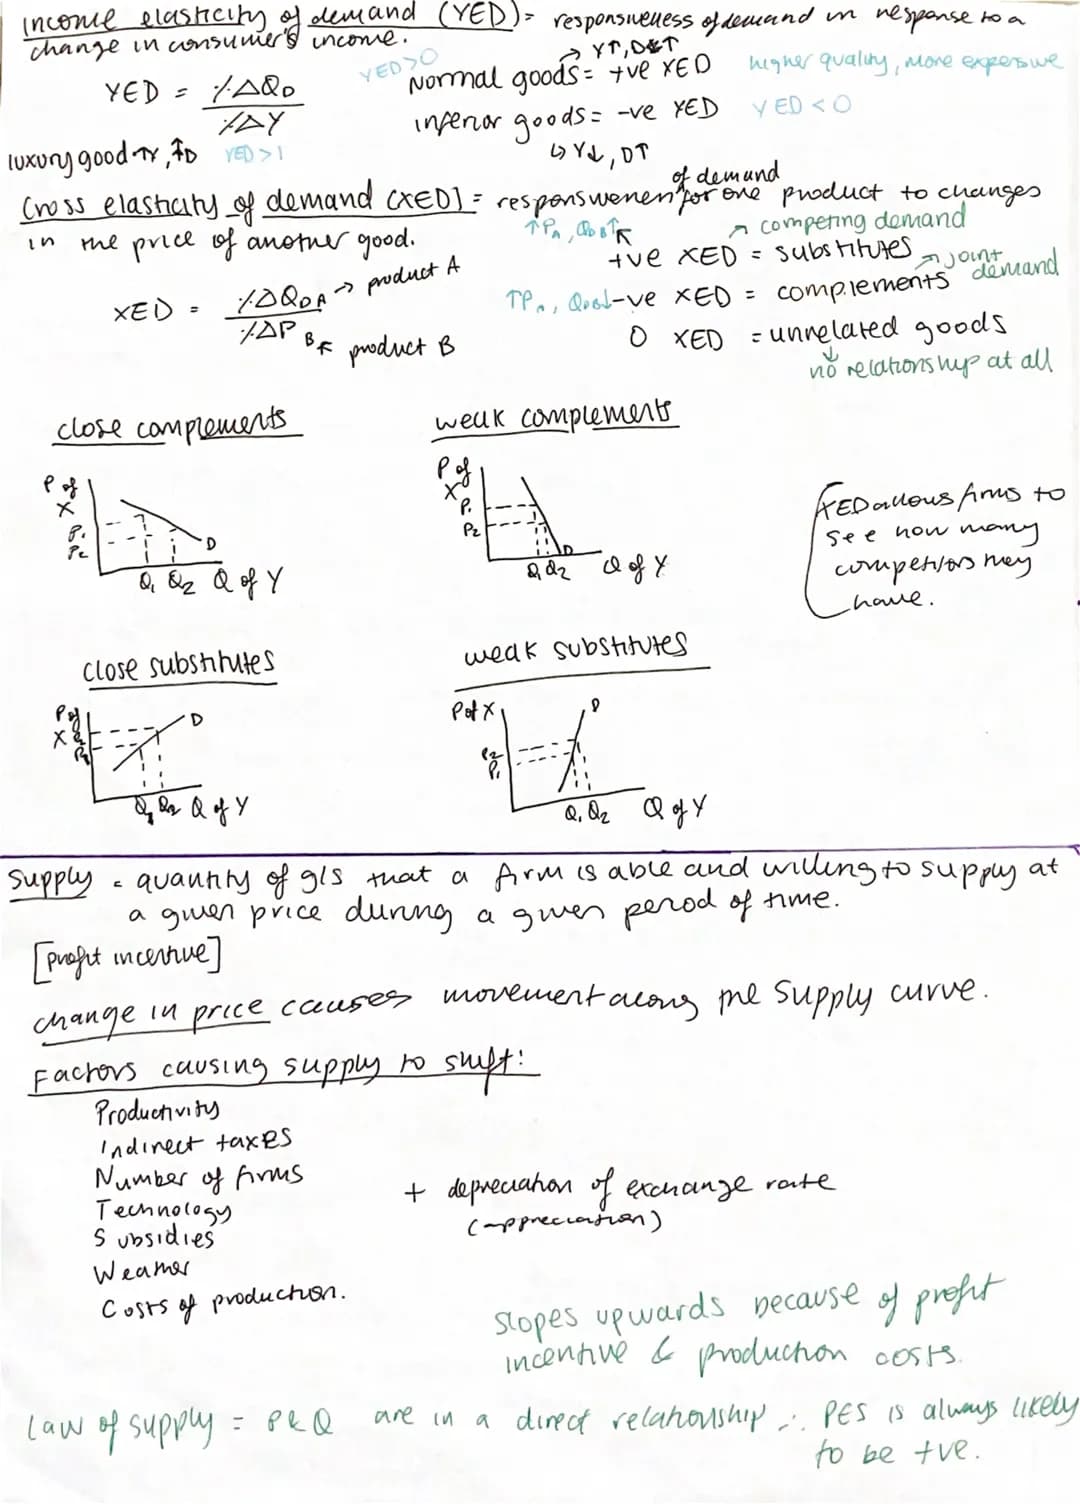 Income elasticity of demand (YED) = responsiveness of demand in response to a
change in consumer's income.
YED = %ΔQD / %ΔY
YED>0
→ Y↑, D↑
Normal goods = +ve YED
higher quality, more expensive
inferior goods = -ve YED
YED<0
↳ Y↓, D↑
luxury good ↑Y, ⇑D YED>1
Cross elasticity of demand (XED) = responsiveness of demand for one product to changes
in the price of another good.
XED = %ΔQDA → product A
%ΔP B product B
↗ competing demand
+ve XED = substitutes
↗ joint demand
-ve XED = complements
0 XED = unrelated goods
↓
no relationship at all
close complements
P of X
P1
P2
D
Q1 Q2 Q of Y
weak complements
P of X
P1
P2
D
Q1 Q2 Q of Y
XED allows firms to
see how many
competitors they
have.
close substitutes
P of X
P2
P1
D
Q1 Q2 Q of Y
weak substitutes
P of X
P2
P1
D
Q1 Q2 Q of Y
Supply = quantity of g/s that a firm is able and willing to supply at
a given price during a given period of time.
[profit incentive]
change in price causes movement along the supply curve.
Factors causing supply to shift:
Productivity
Indirect taxes
Number of firms
Technology
Subsidies
Weather
Costs of production.
+ depreciation of exchange rate
(-appreciation)
slopes upwards because of profit
incentive & production costs.
Law of supply = P&Q are in a direct relationship ∴ PES is always likely
to be +ve.